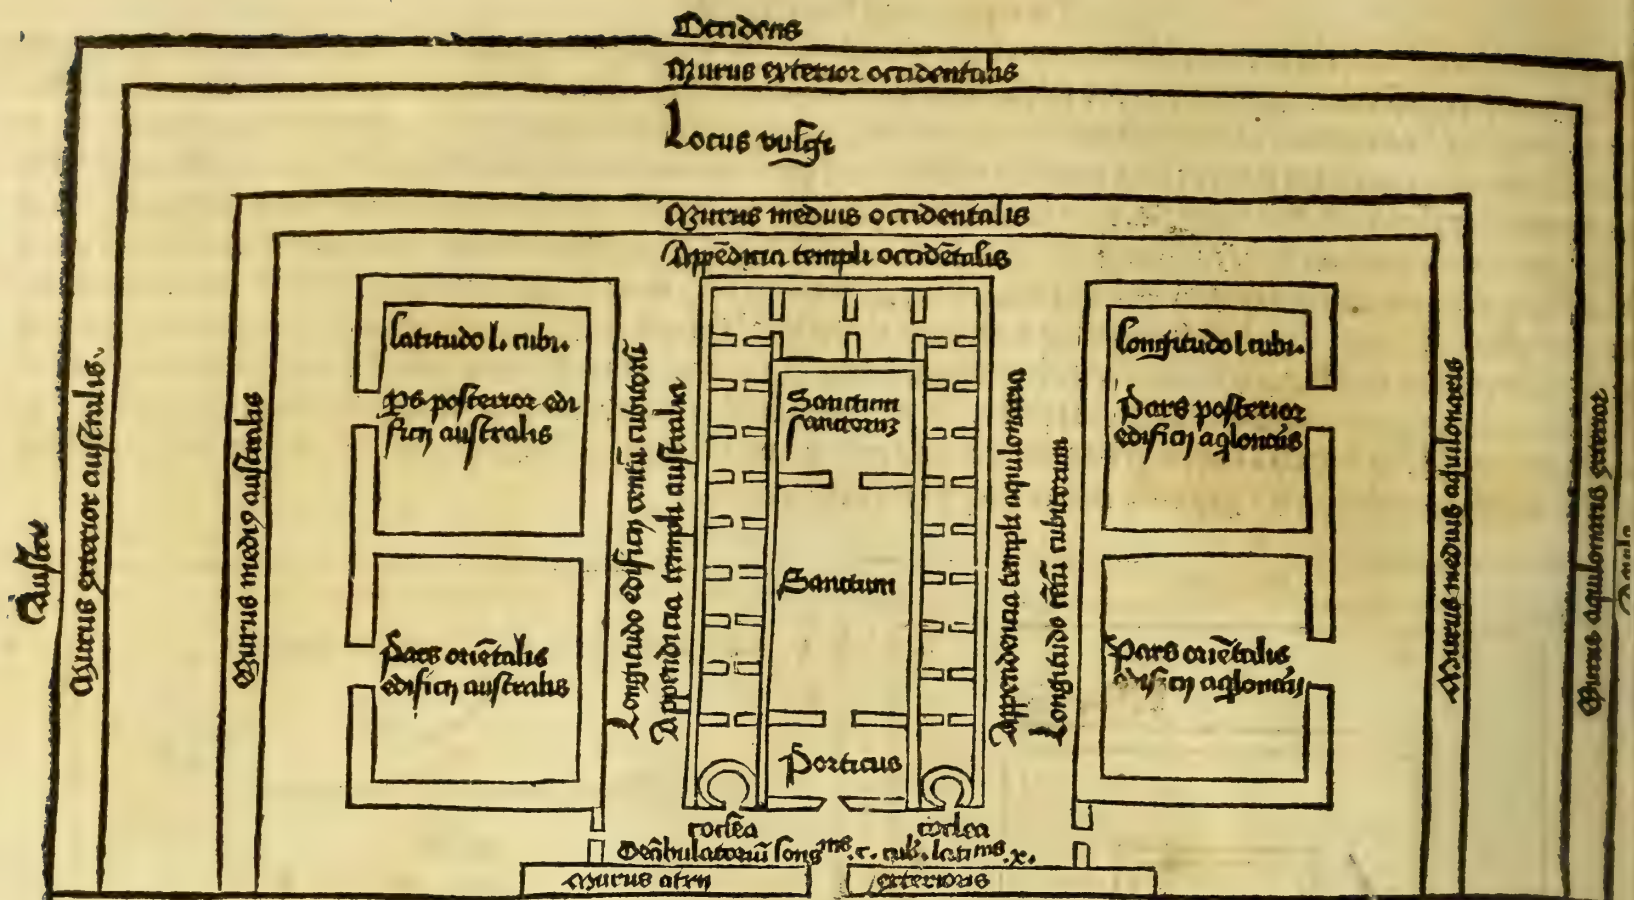 Occidens
Murus exterior occidentalis
Locus vulgi
Murus medius occidentalis
Appēdicia templi occidētalis
latitudo l. cubi.
ps posterior edi
ficij australis
Pars oriētalis
edificij australis
Murus exterior australis.
Murus mediꝰ australis
Longitudo edificij centū cubitorū
Appendicia templi australia
Sanctum
sanctorum
Sanctum
Porticus
Appendencia templi aquilonaria
Longitudo cētū cubitorum
longitudo l cubi.
Pars posterior
edificij aq̄lonaris
Pars oriētalis
edificij aq̄lonarij
Murus medius aquilonaris
Murus aquilonaris exterior
coclea
coclea
Deābulatoriū long ms. c. cub. lati ms. x.
Murus atrij
exterioris